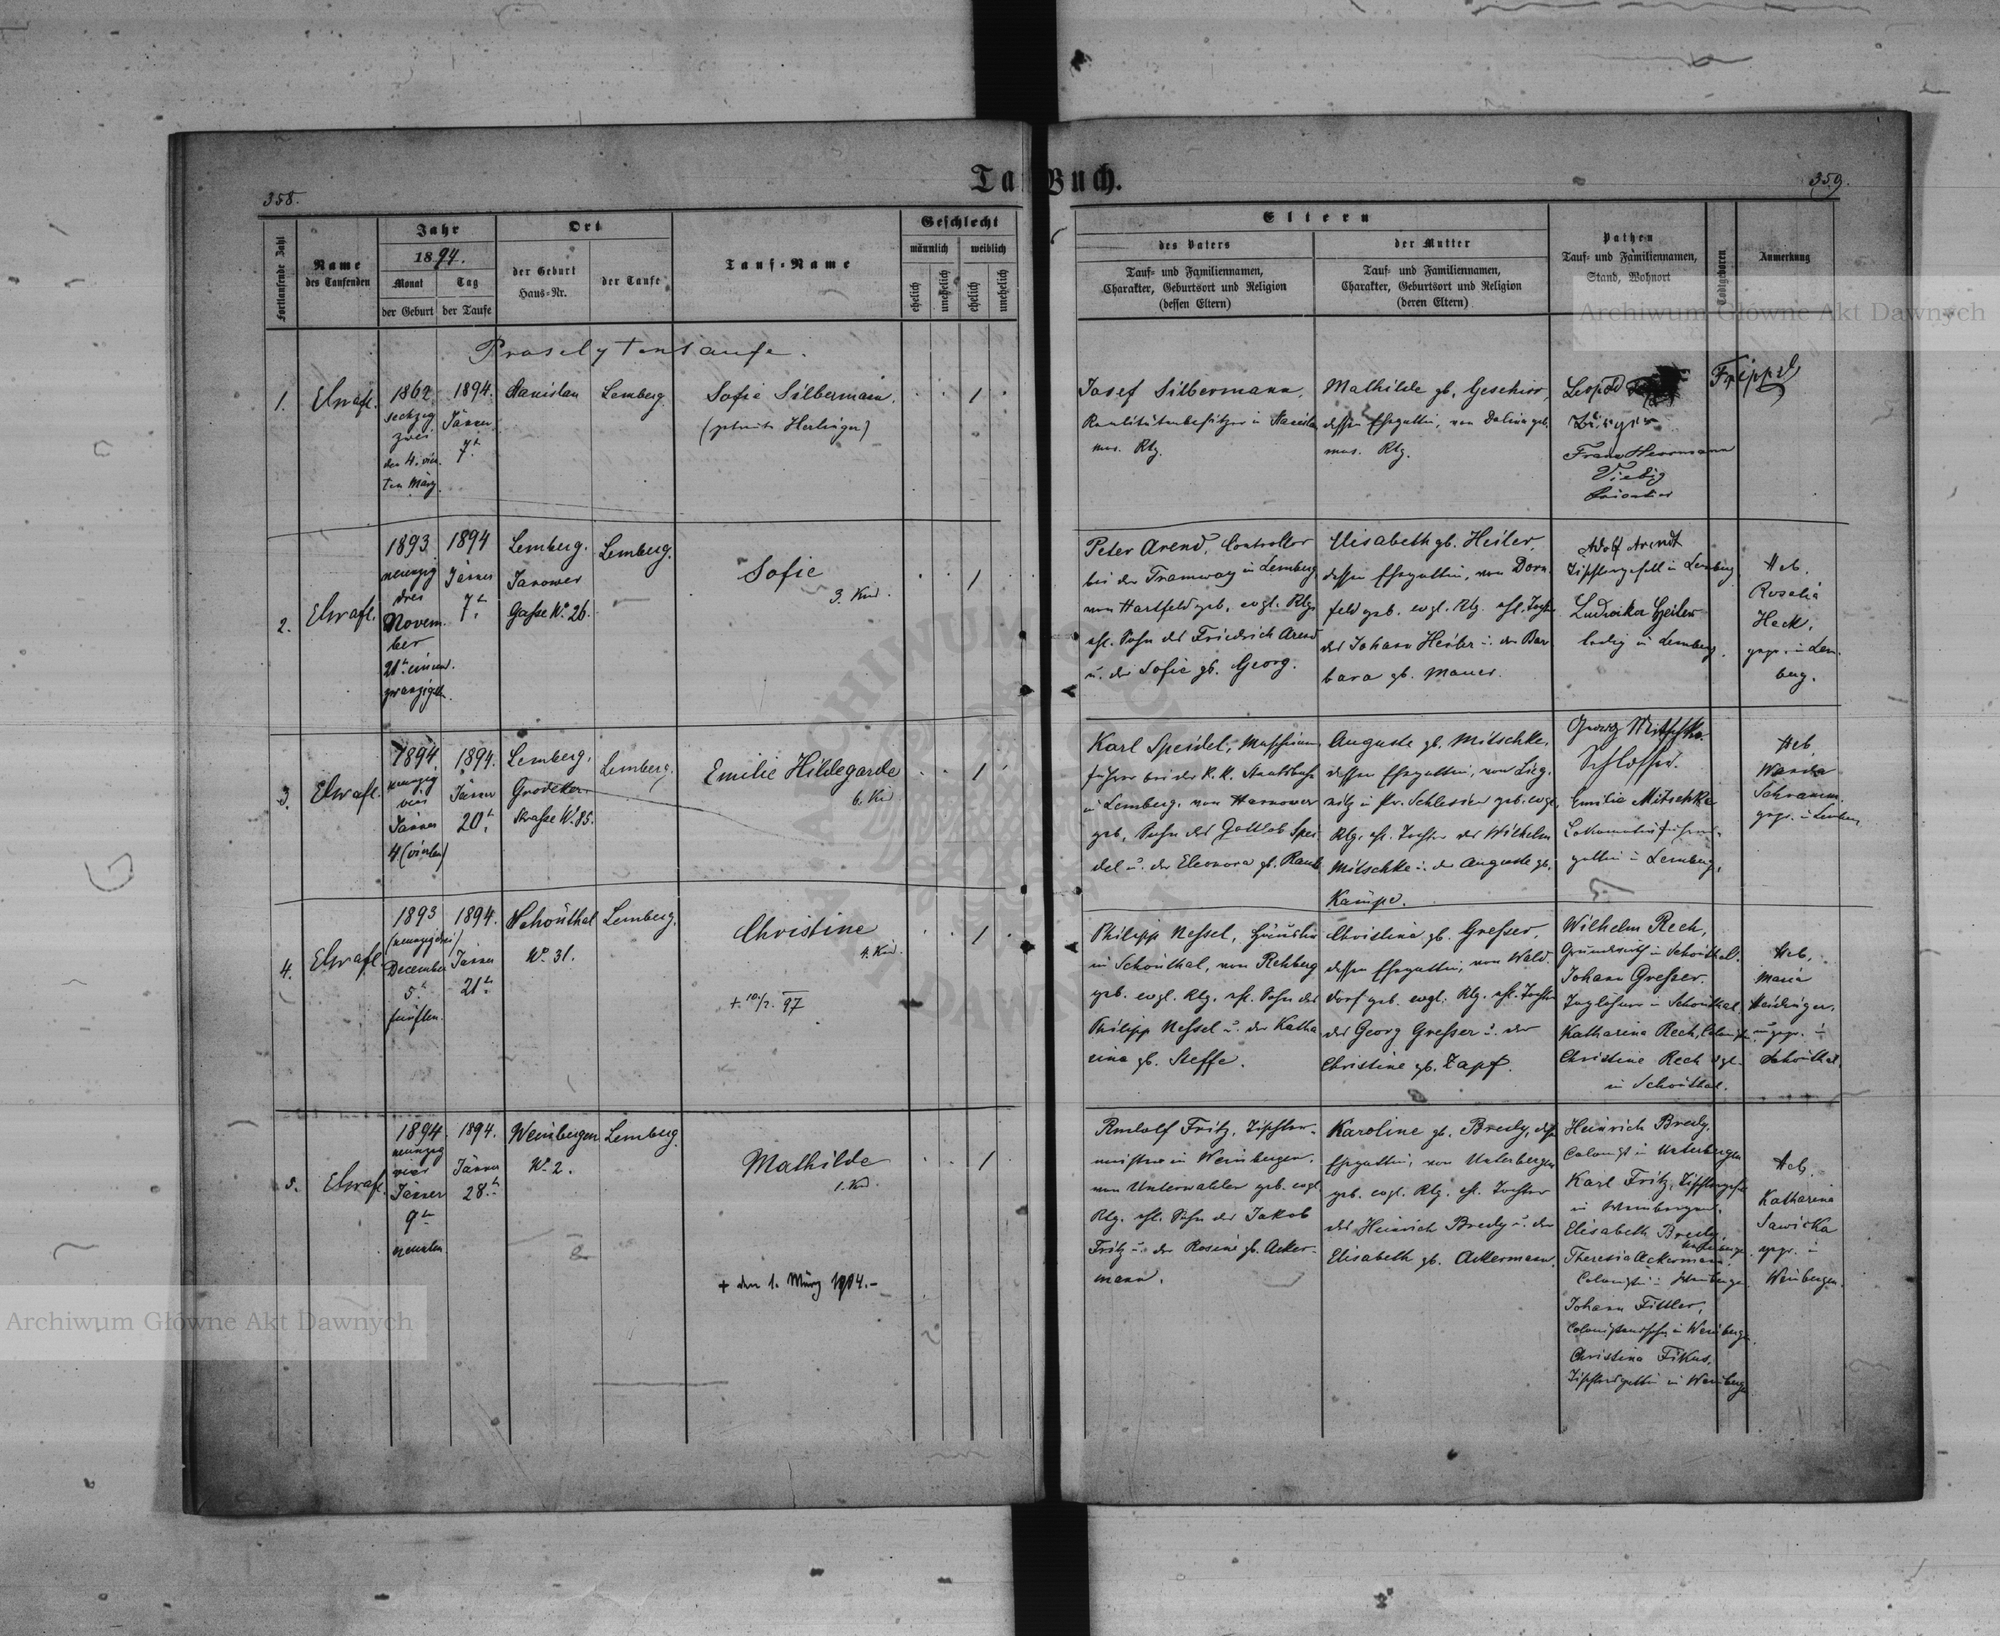 358.
Tauf-Buch.
359.
Fortlaufende Zahl
Name
des Taufenden
Jahr
1894.
Monat
der Geburt
Tag
der Taufe
Ort
der Geburt
Haus-Nr.
der Taufe
Tauf-Name
Geschlecht
männlich
weiblich
ehelich
unehelich
ehelich
unehelich
Eltern
des Vaters
Tauf- und Familiennamen,
Charakter, Geburtsort und Religion
(dessen Eltern)
der Mutter
Tauf- und Familiennamen,
Charakter, Geburtsort und Religion
(deren Eltern)
Pathen
Tauf- und Familiennamen,
Stand, Wohnort
Todtgeboren
Anmerkung
Proselytentaufe.
1.
1862
sechzig
zwei
den 4. vier
ten März.
1894.
Jänner
7.
Stanislau
Lemberg.
Sofie Silbermann.
1
Josef Silbermann,
Realitätenbesitzer in Stanislau
mos. Rlg.
Mathilde gb. Geschirr,
dessen Ehegattin, von Dolina geb.
mos. Rlg.
Leopold
Franz Herrmann
Viebig
2.
1893
neunzig
drei
Novem-
ber
21t einund-
zwanzigsten.
1894
Jänner
7t
Lemberg.
Janower
Gasse No 26.
Lemberg.
Sofie
3. Kind.
1
Peter Arend, Controllor
bei der Tramway in Lemberg
von Hartfeld geb. evgl. Rlg.
ehl. Sohn des Friedrich Arend
u. der Sofie gb. Georg.
Elisabeth gb. Heiler,
dessen Ehegattin, von Dorn-
feld geb. evgl. Rlg. ehl. Tochter
des Johann Heiler u. der Bar-
bara gb. Mauer.
Adolf Arendt
Tischlergesell in Lemberg
Ludwika Heiler
ledig in Lemberg.
Heb.
Rosalia
Heck,
gepr. in Lem-
berg.
3.
1894.
neunzig
vier
Jänner
4 (vierten)
1894.
Jänner
20t
Lemberg,
Grodeker-
Strasse No 85.
Lemberg.
Emilie Hildegarde
6. Kind
1
Karl Speidel, Maschinen-
führer bei der K. K. Staatsbahn
in Lemberg, von Hannover
geb. Sohn des Gottlob Spei-
del u. der Eleonora gb. Raub
Auguste gb. Mitschke,
dessen Ehegattin, von Lieg-
nitz in Pr. Schlesien geb. evgl.
Rlg. ehl. Tochter des Wilhelm
Mitschke u. der Auguste gb.
Kämpe.
Georg Mitschke
Schlosser.
Emilie Mitschke
Lokomotivführers-
gattin in Lemberg.
Heb.
Wanda
Schramm.
gepr. in Lemberg
4.
1893
(neunzigdrei)
December
5t
fünften.
1894.
Jänner
21t
Schönthal
No 31.
Lemberg.
Christine
4. Kind.
+ 10/2. 97
1
Philipp Nessel, Häusler
in Schönthal, von Rehberg
geb. evgl. Rlg. ehl. Sohn des
Philipp Nessel u. der Katha-
rina gb. Steffe.
Christina gb. Gresser,
dessen Ehegattin, von Wald-
dorf geb. evgl. Rlg. ehl. Tochter
des Georg Gresser u. der
Christine gb. Zapf.
Wilhelm Rech,
Grundwirth in Schönthal.
Johann Gresser.
Taglöhner in Schönthal,
Katharina Rech,
Christine Rech
in Schönthal.
Heb.
Maria
ungepr. in
Schönthal.
5.
1894.
neunzig
vier
Jänner
9t
neunten
1894.
Jänner
28t
Weinbergen
No 2.
Lemberg.
Mathilde
1. Kind.
+ den 1. März 1904.-
1
Rudolf Fritz, Tischler-
meister in Weinbergen,
von Unterwalden geb. evgl.
Rlg. ehl. Sohn des Jakob
Fritz u. der Rosine gb. Acker-
mann.
Karoline gb. Bredy, dess.
Ehegattin, von Unterbergen
geb. evgl. Rlg. ehl. Tochter
des Heinrich Bredy u. der
Elisabeth gb. Ackermann.
Heinrich Bredy,
Colonist in Unterbergen
Karl Fritz, Tischlergeselle
in Weinbergen.
Elisabeth Bredy,
Theresia Ackermann
Johann Fittler,
Colonistensohn in Weinbergen.
Christina Fikus,
Tischlersgattin in Weinbergen
Heb.
Katharina
Sawicka
gepr. in
Weinbergen.
Archiwum Główne Akt Dawnych
Archiwum Główne Akt Dawnych